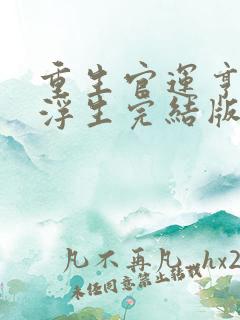 重生官运亨
浮生完结版
凡不再凡_hx2
未经同意禁止转载